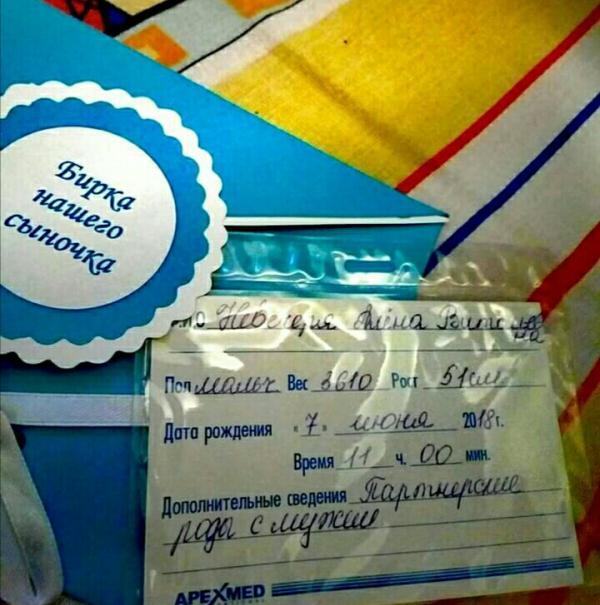 Бирка
нашего
сыночка
Алёна
Пол мальч Вес 3610 Рост 51см
Дата рождения "7" июня 2018г.
Время 11 ч. 00 мин.
Дополнительные сведения Партнерские
роды с мужем
APEXMED